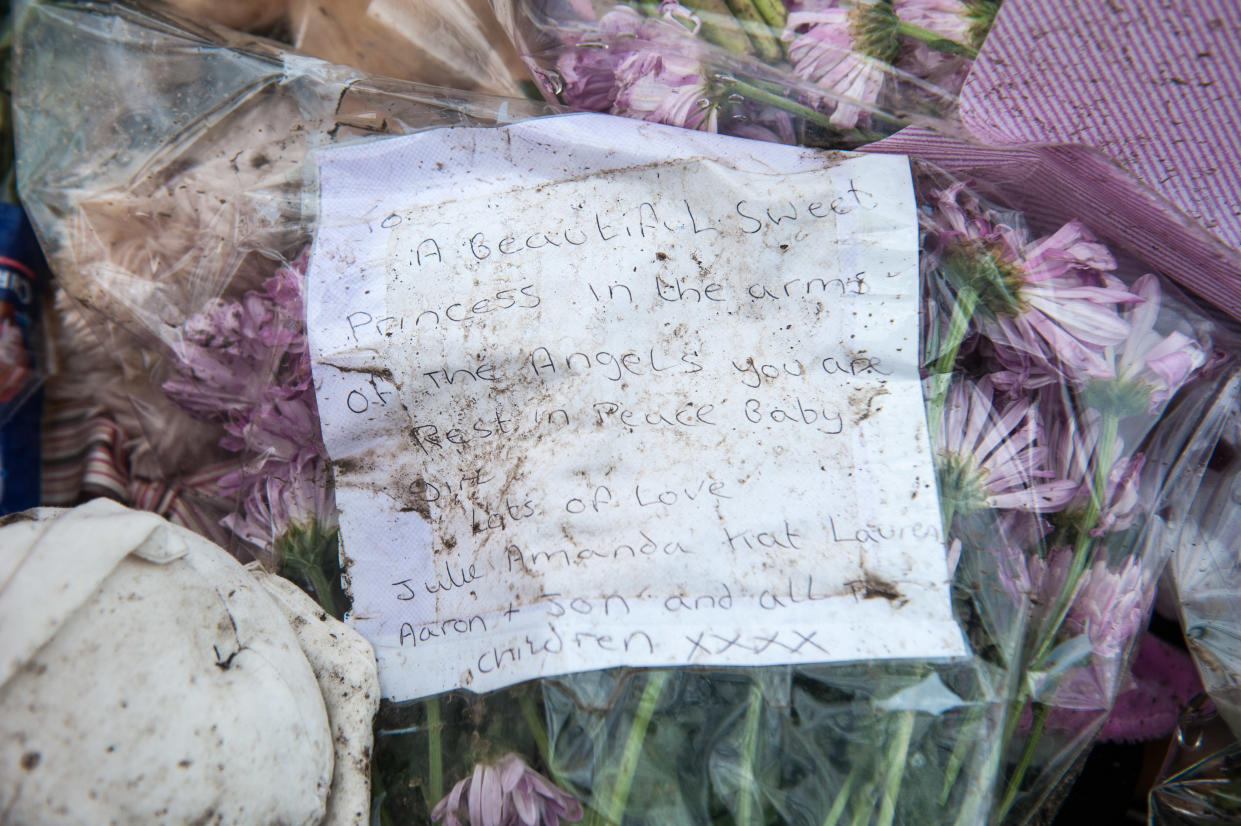 To
A Beautiful Sweet
Princess in the arms
Of The Angels you are
Rest in Peace Baby
Girl
Lots of Love
Julie Amanda Kat Lauren
Aaron + Jon and all
children xxxx